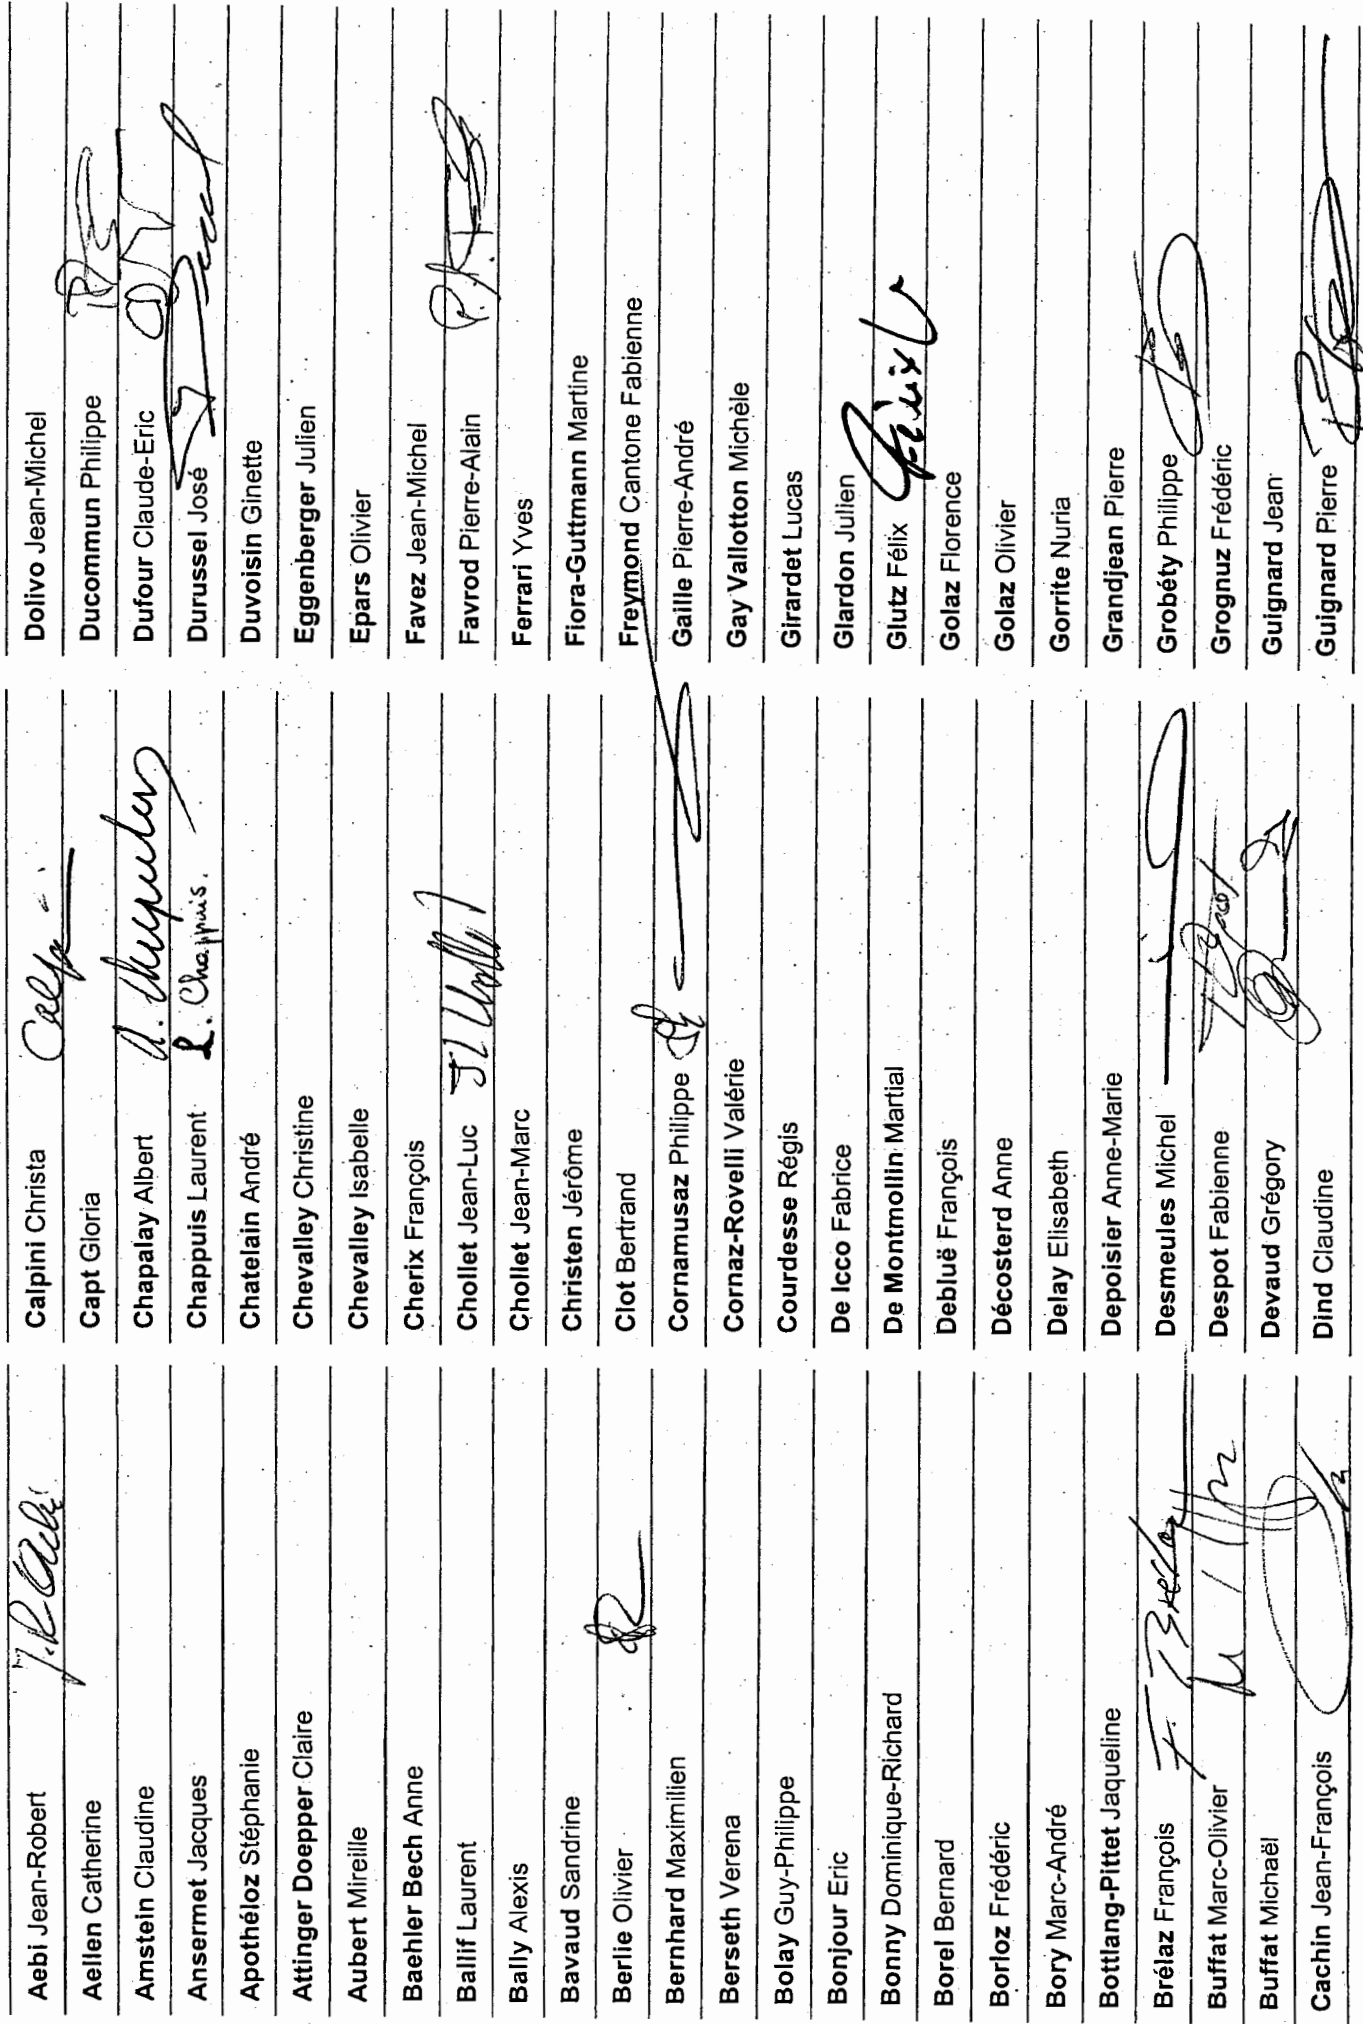 Aebi Jean-Robert J.R. Aebi
Aellen Catherine
Amstein Claudine
Ansermet Jacques
Apothéloz Stéphanie
Attinger Doepper Claire
Aubert Mireille
Baehler Bech Anne
Ballif Laurent
Bally Alexis
Bavaud Sandrine
Berlie Olivier
Bernhard Maximilien
Berseth Verena
Bolay Guy-Philippe
Bonjour Eric
Bonny Dominique-Richard
Borel Bernard
Borloz Frédéric
Bory Marc-André
Bottlang-Pittet Jaqueline
Brélaz François F. Brélaz
Buffat Marc-Olivier
Buffat Michaël
Cachin Jean-François
Calpini Christa
Capt Gloria
Chapalay Albert
Chappuis Laurent L. Chappuis.
Chatelain André
Chevalley Christine
Chevalley Isabelle
Cherix François
Chollet Jean-Luc
Chollet Jean-Marc
Christen Jérôme
Clot Bertrand
Cornamusaz Philippe
Cornaz-Rovelli Valérie
Courdesse Régis
De Icco Fabrice
De Montmollin Martial
Debluë François
Décosterd Anne
Delay Elisabeth
Depoisier Anne-Marie
Desmeules Michel
Despot Fabienne
Devaud Grégory
Dind Claudine
Dolivo Jean-Michel
Ducommun Philippe
Dufour Claude-Eric
Durussel José
Duvoisin Ginette
Eggenberger Julien
Epars Olivier
Favez Jean-Michel
Favrod Pierre-Alain
Ferrari Yves
Fiora-Guttmann Martine
Freymond Cantone Fabienne
Gaille Pierre-André
Gay Vallotton Michèle
Girardet Lucas
Glardon Julien
Glutz Félix
Golaz Florence
Golaz Olivier
Gorrite Nuria
Grandjean Pierre
Grobéty Philippe
Grognuz Frédéric
Guignard Jean
Guignard Pierre